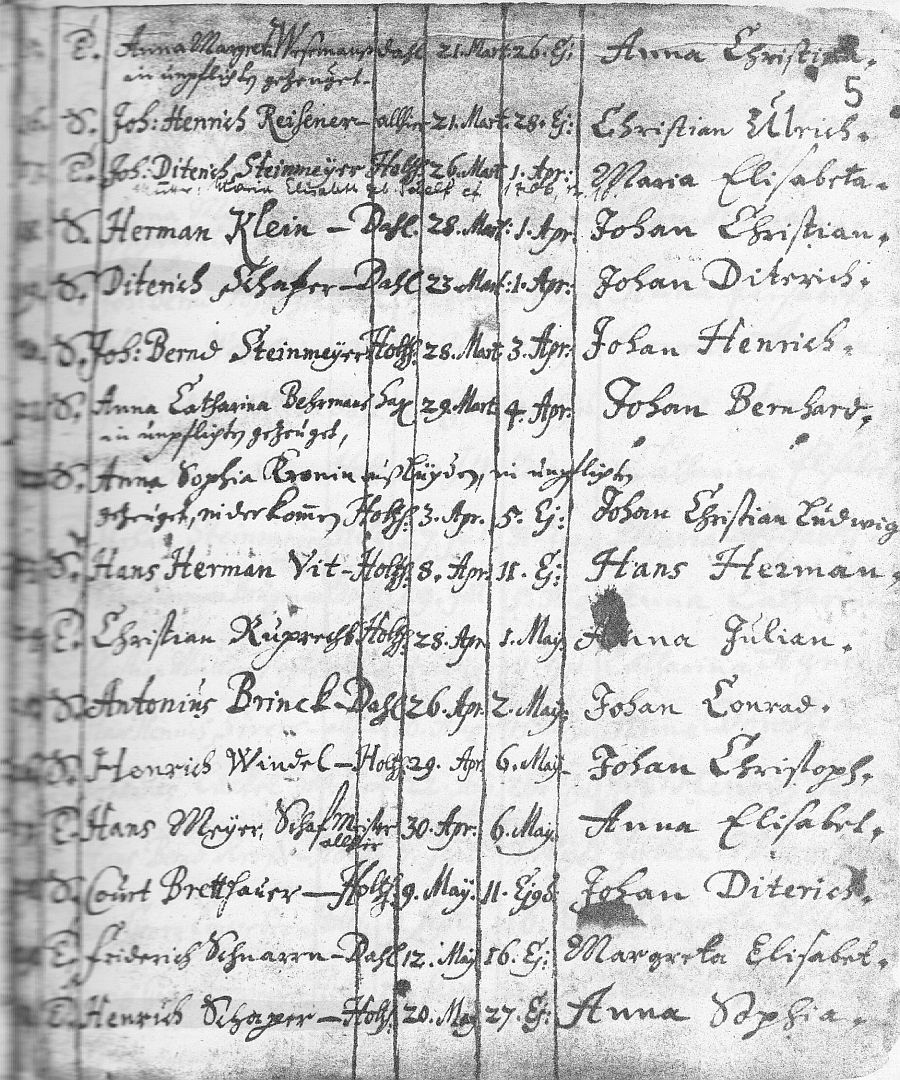 T. Anna Margreta Wesemans Dahl 21. Mart. 26. Ej: Anna Christina.
in unpflichten gezeuget.
5
S. Joh: Henrich Reisener – allhier 21. Mart. 28. Ej: Christian Ulrich.
T. Joh: Diterich Steinmeyer Holtzh. 26. Mart 1. Apr: Maria Elisabeta.
Maria Elisabeth
S. Herman Klein – Dahl. 28. Mart: 1. Apr. Johan Christian.
S. Diterich Schafer – Dahl 23. Mart: 1. Apr: Johan Diterich.
S. Joh: Bernd Steinmeyer Holtzh. 28. Mart 3. Apr: Johan Henrich.
S. Anna Catharina Behrmans Hax 29. Mart 4. Apr: Johan Bernhard.
in unpflichten gezeuget,
S. Anna Sophia Kronin auß Lüyden, in unpflichten
gezeuget, niderkommen Holtzh. 3. Apr. 5. Ej: Johan Christian Ludwig
S. Hans Herman Vit – Holtzh. 8. Apr: 11. Ej: Hans Herman.
T. Christian Ruprecht Holtzh. 28. Apr. 1. May. Anna Julian.
S. Antonius Brinck – Dahl 26. Apr. 2. May: Johan Conrad.
S. Henrich Windel – Holtzh. 29. Apr 6. May. Johan Christoph.
T. Hans Meyer, Schaf Meister 30. Apr. 6. May: Anna Elisabet.
allhier
S. Court Bretthauer – Holtzh. 9. May. 11. Ejqs. Johan Diterich.
T. Friderich Schnarrn – Dahl 12. May 16. Ej: Margreta Elisabet.
T. Henrich Schaper – Holtzh. 20. May 27. Ej: Anna Sophia.